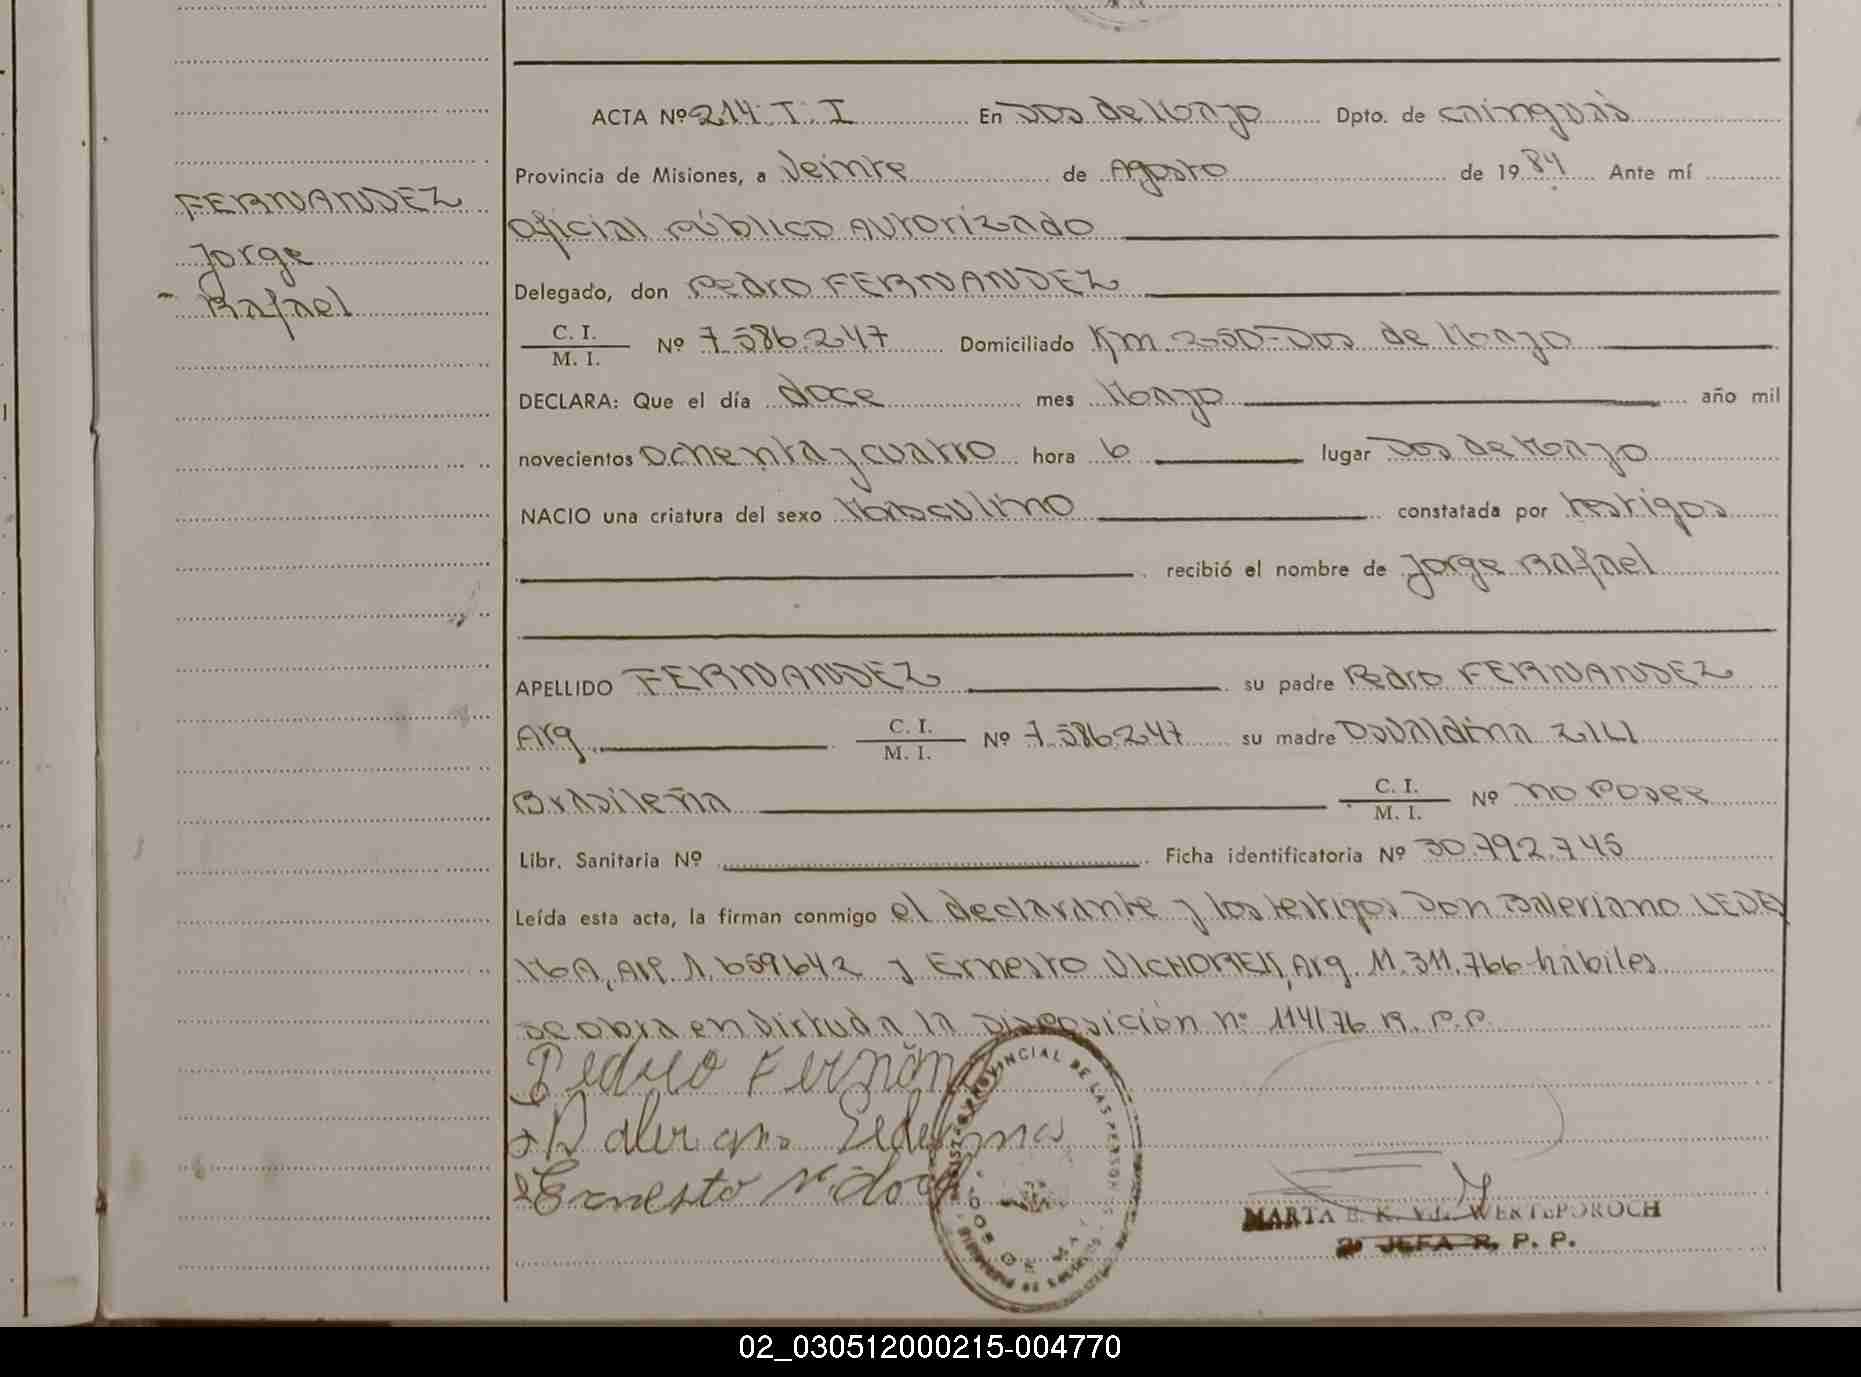 ACTA Nº 214. T. I En Dos de Mayo Dpto. de Cainguás
Provincia de Misiones, a Veinte de Agosto de 1984 Ante mí
Oficial Público Autorizado
FERNANDEZ
Jorge
Rafael
Delegado, don Pedro FERNANDEZ
C. I.
M. I. Nº 7.586.247 Domiciliado Km. 250-Dos de Mayo
DECLARA: Que el día doce mes Mayo año mil
novecientos ochenta y cuatro hora 6 lugar Dos de Mayo
NACIO una criatura del sexo Masculino constatada por testigos
recibió el nombre de Jorge Rafael
APELLIDO FERNANDEZ su padre Pedro FERNANDEZ
Arg. C. I.
M. I. Nº 7.586.247 su madre Osvaldina
Brasileña C. I.
M. I. Nº no Posee
Libr. Sanitaria Nº Ficha identificatoria Nº 30.792.745
Leída esta acta, la firman conmigo el declarante y los testigos Don Baleriano LEDE
Arg. 1.659642 y Ernesto Arg. 11.311.766 hábiles
se obra en virtud a la Disposición nº 114/76 R. P. P.
Pedro Fernan
Baleriano
Ernesto
PROVINCIAL DE LAS PERSONAS
DOS DE MAYO
MARTA E. K. WERTEPOROCH
JEFA R. P. P.
02_030512000215-004770